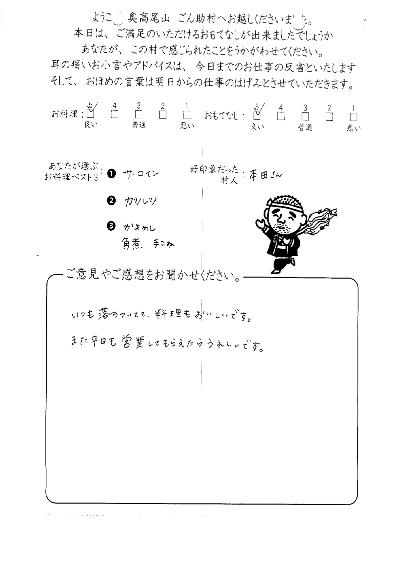 ようこ 奥高尾山 ごん助村へお越しくださいま た。
本日は、ご満足のいただけるおもてなしが出来ましたでしょうか
あなたが、この村で感じられたことをうかがわせてください。
耳の痛いお小言やアドバイスは、今日までのお仕事の反省といたします
そして、おほめの言葉は明日からの仕事のはげみとさせていただきます。
お料理: 5 4 3 2 1 おもてなし: 5 4 3 2 1
良い 普通 悪い 良い 普通 悪い
あなたが選ぶ
お料理ベスト3: ❶ サーロイン
好印象だった
村人: 本田さん
❷ カリレリ
❸ かまめし
角煮、手こね
ご意見やご感想をお聞かせください。
いつも落ちついてて、料理もおいしいです。
また平日も営業してもらえたらうれしいです。